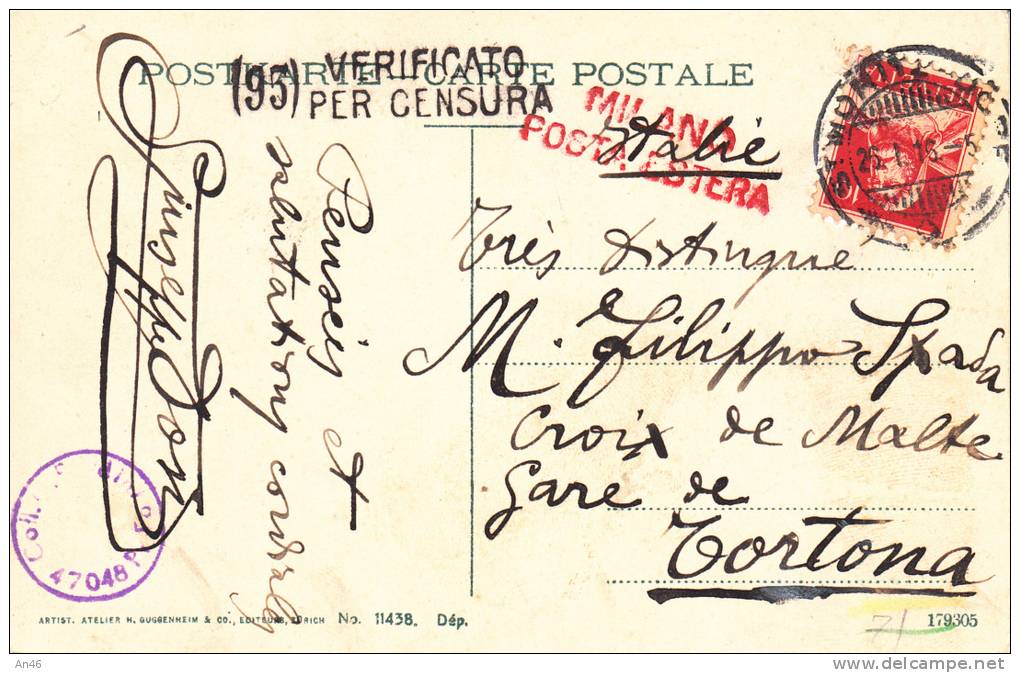 POSTKARTE - CARTE POSTALE
(95) VERIFICATO
PER CENSURA
MILANO
POSTA ESTERA
Italie
ST. MORITZ
Très distingue
M. Filippo Spada
Croix de Malte
Gare de
Tortona
Penseés et
salutations cordiales
Giuseppe
47048
ARTIST. ATELIER H. GUGGENHEIM & CO., EDITEURS, ZÜRICH No. 11438. Dép.
71
179305
An46
www.delcampe.net